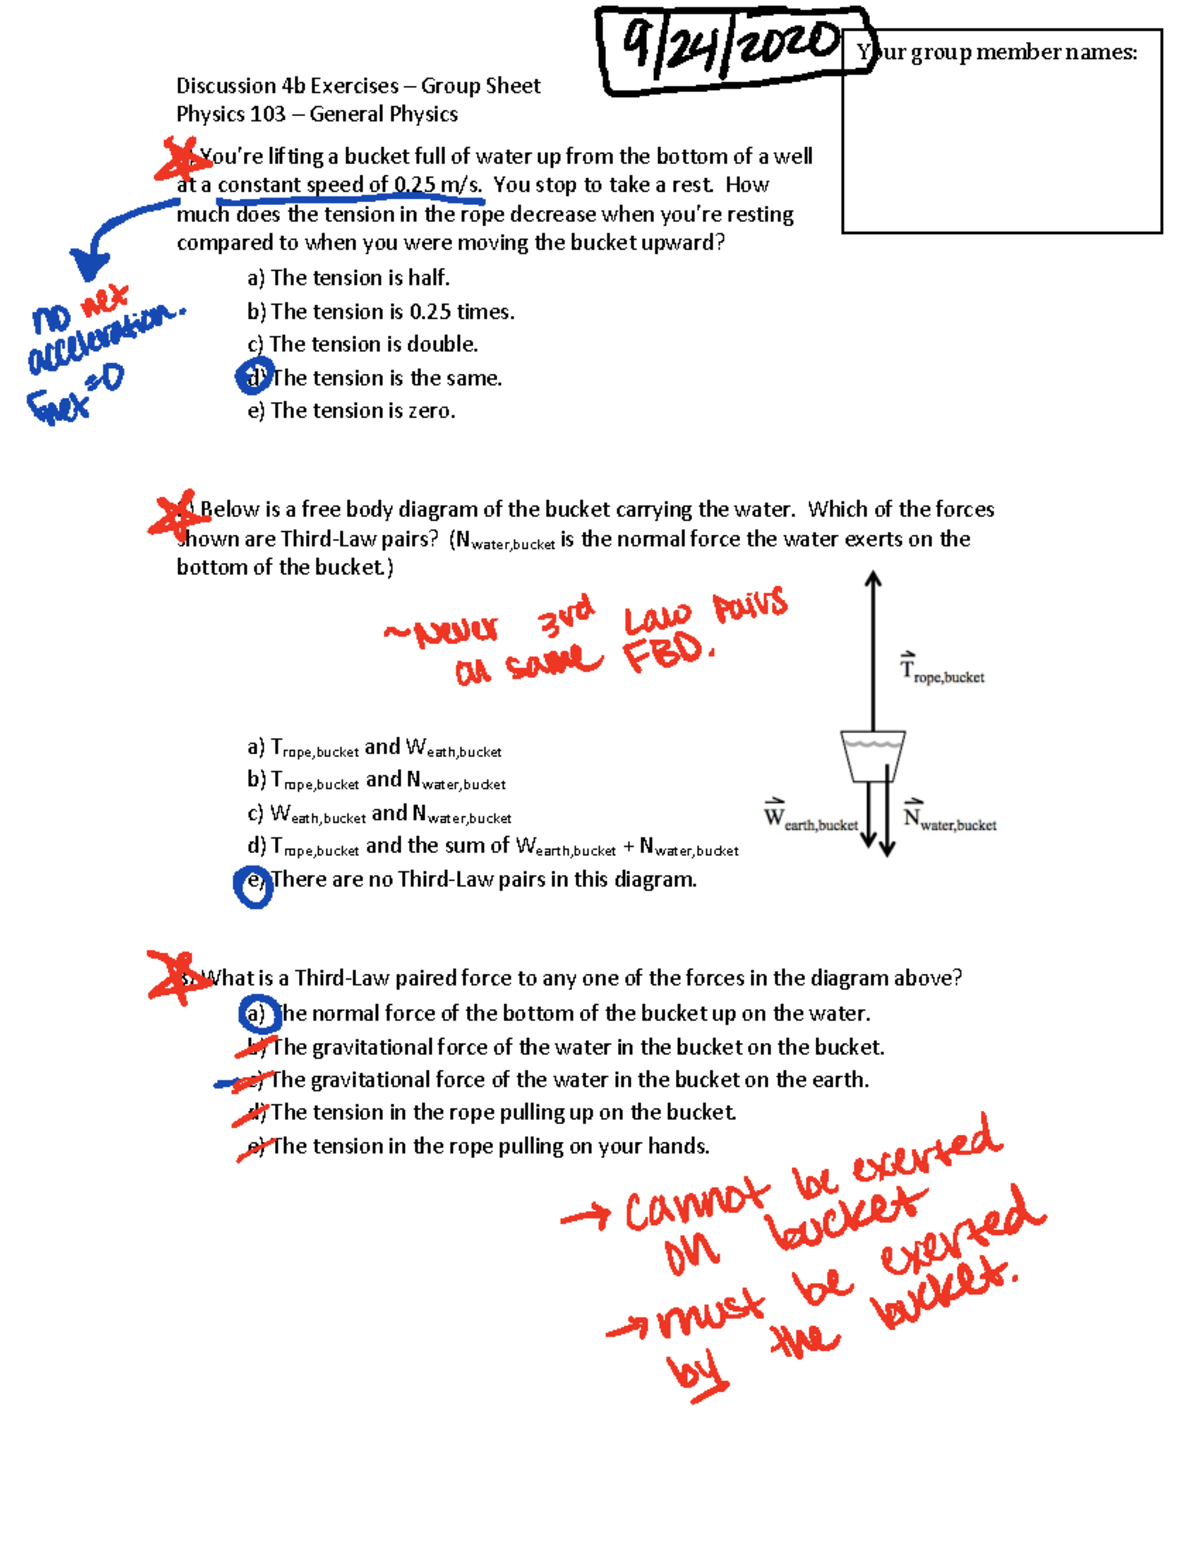 9/24/2020
Your group member names:
Discussion 4b Exercises – Group Sheet
Physics 103 – General Physics
You're lifting a bucket full of water up from the bottom of a well
at a constant speed of 0.25 m/s. You stop to take a rest. How
much does the tension in the rope decrease when you're resting
compared to when you were moving the bucket upward?
a) The tension is half.
b) The tension is 0.25 times.
c) The tension is double.
d) The tension is the same.
e) The tension is zero.
no net
acceleration.
Fnet=0
) Below is a free body diagram of the bucket carrying the water. Which of the forces
shown are Third-Law pairs? (Nwater,bucket is the normal force the water exerts on the
bottom of the bucket.)
~Never 3rd Law Pairs
on same FBD.
Trope,bucket
a) Trope,bucket and Weath,bucket
b) Trope,bucket and Nwater,bucket
c) Weath,bucket and Nwater,bucket
d) Trope,bucket and the sum of Wearth,bucket + Nwater,bucket
e) There are no Third-Law pairs in this diagram.
Wearth,bucket
Nwater,bucket
3) What is a Third-Law paired force to any one of the forces in the diagram above?
a) The normal force of the bottom of the bucket up on the water.
b) The gravitational force of the water in the bucket on the bucket.
c) The gravitational force of the water in the bucket on the earth.
d) The tension in the rope pulling up on the bucket.
e) The tension in the rope pulling on your hands.
→ cannot be exerted
on bucket
→ must be exerted
by the bucket.